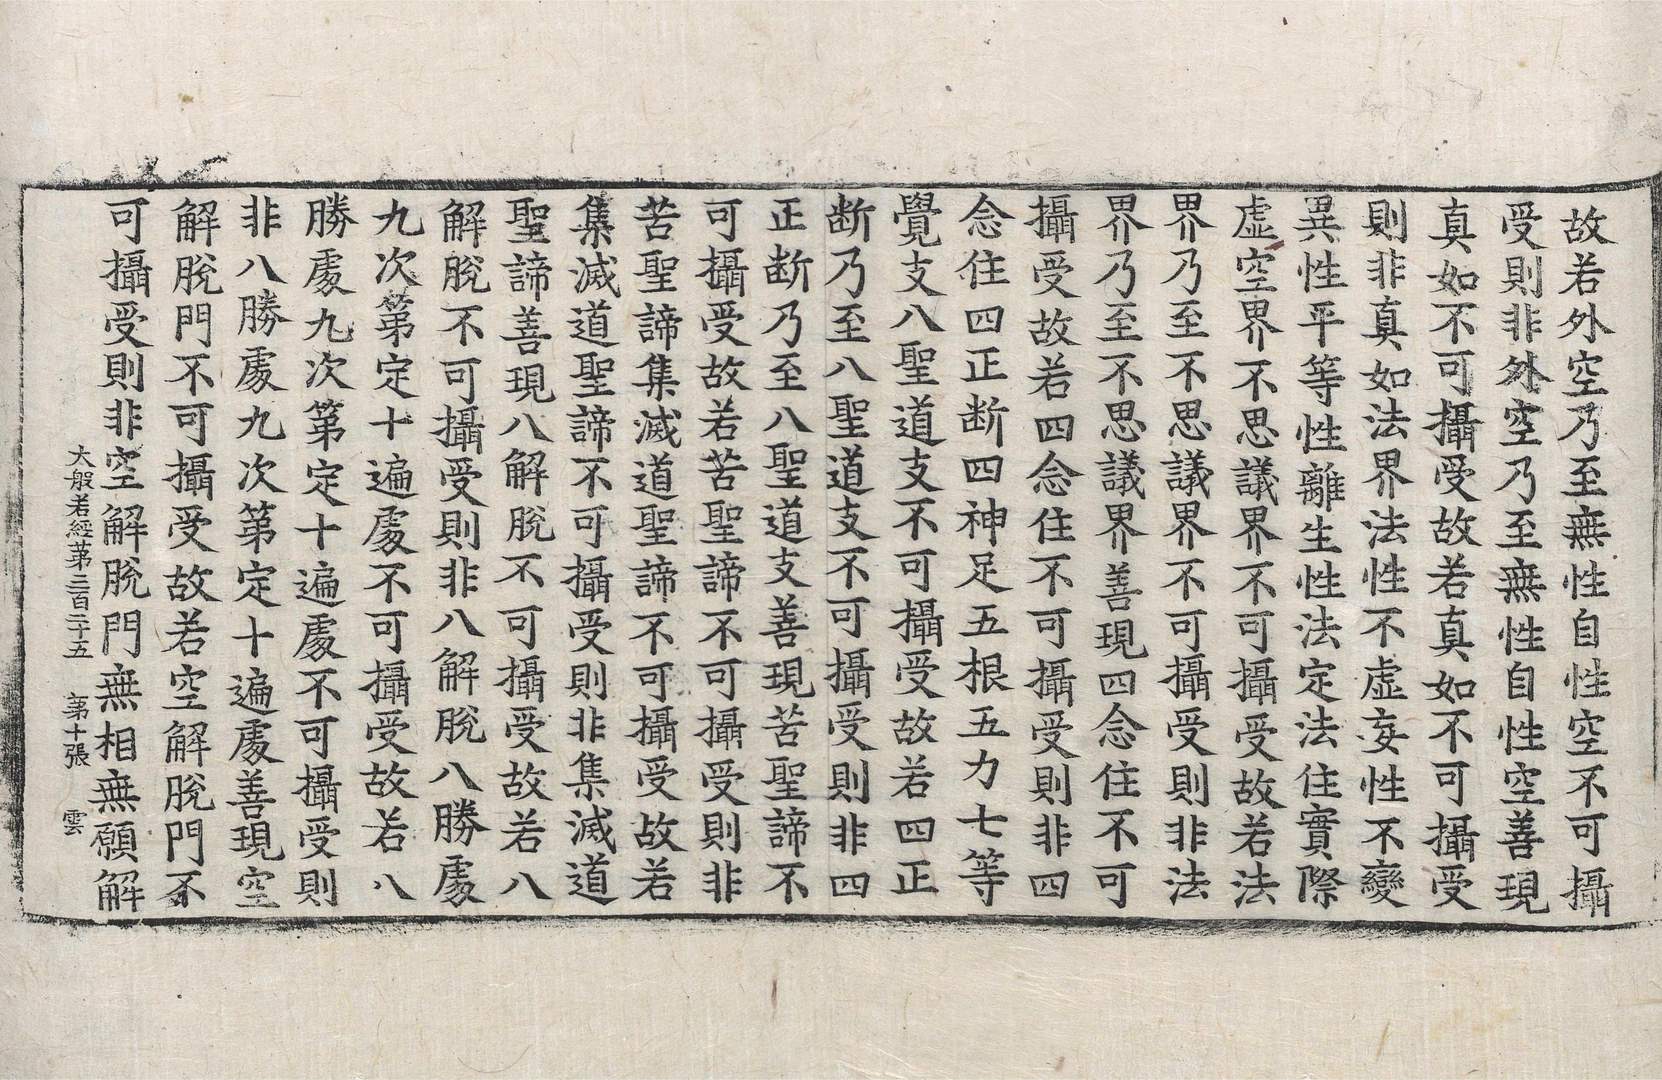 故若外空乃至無性自性空不可攝
受則非外空乃至無性自性空善現
真如不可攝受故若真如不可攝受
則非真如法界法性不虛妄性不變
異性平等性離生性法定法住實際
虛空界不思議界不可攝受故若法
界乃至不思議界不可攝受則非法
界乃至不思議界善現四念住不可
攝受故若四念住不可攝受則非四
念住四正断四神足五根五力七等
覺支八聖道支不可攝受故若四正
断乃至八聖道支不可攝受則非四
正断乃至八聖道支善現苦聖諦不
可攝受故若苦聖諦不可攝受則非
苦聖諦集滅道聖諦不可攝受故若
集滅道聖諦不可攝受則非集滅道
聖諦善現八解脫不可攝受故若八
解脫不可攝受則非八解脫八勝處
九次第定十遍處不可攝受故若八
勝處九次第定十遍處不可攝受則
非八勝處九次第定十遍處善現空
解脫門不可攝受故若空解脫門不
可攝受則非空解脫門無相無願解
大般若經第三百二十五 第十張 雲